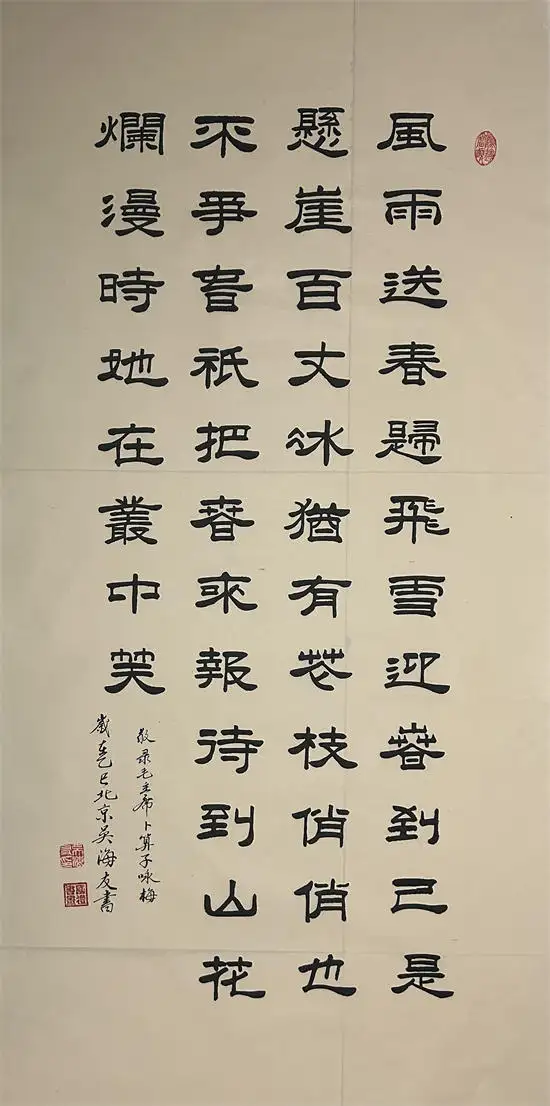 風雨送春歸飛雪迎春到已是
懸崖百丈冰猶有花枝俏俏也
不爭春祇把春來報待到山花
爛漫時她在叢中笑
敬录毛主席卜算子咏梅
歲在乙巳北京吴海友書